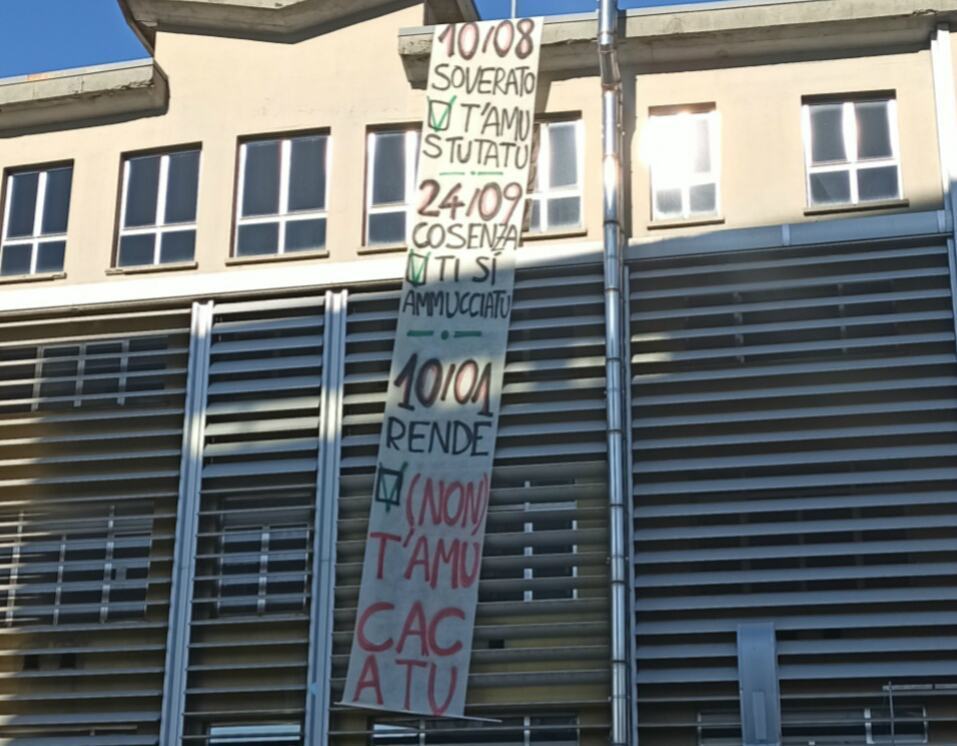 10/08
SOVERATO
☑ T'AMU
STUTATU
24/09
COSENZA
☑ TI SÍ
AMMUCCIATU
10/01
RENDE
☑ (NON)
T'AMU
CAC
ATU